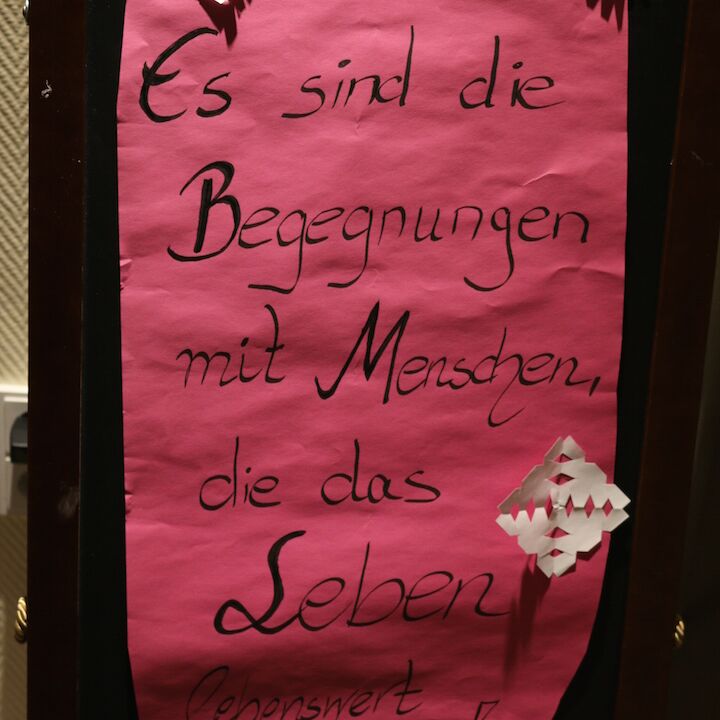 Es sind die
Begegnungen
mit Menschen,
die das
Leben
lebenswert